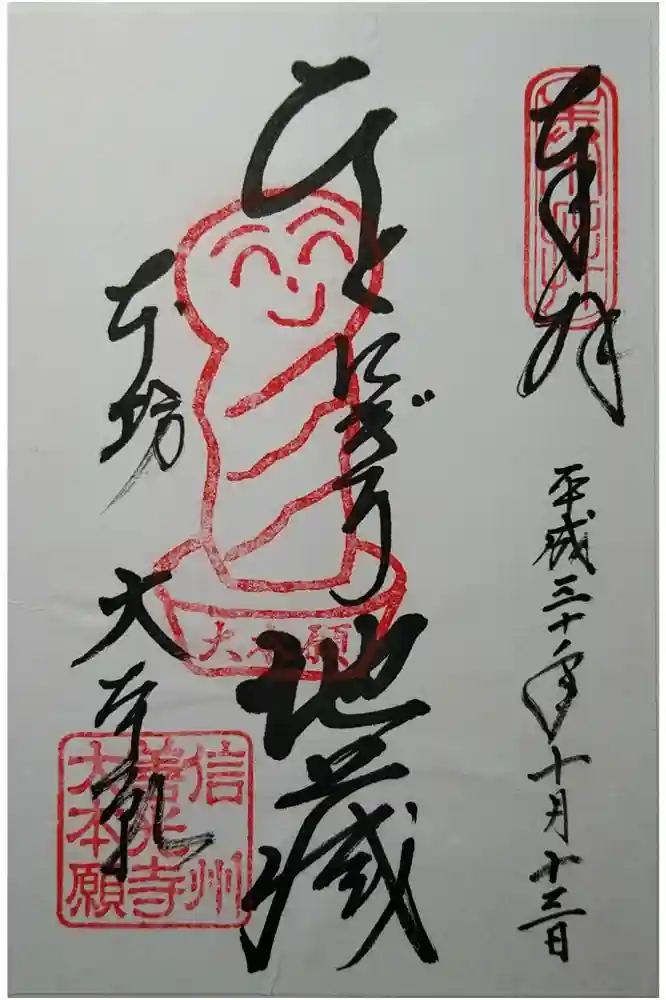 奉拝
平成三十年十月十三日
ひとにぎり地蔵
大本願
本坊 大本願
信州
善光寺
大本願